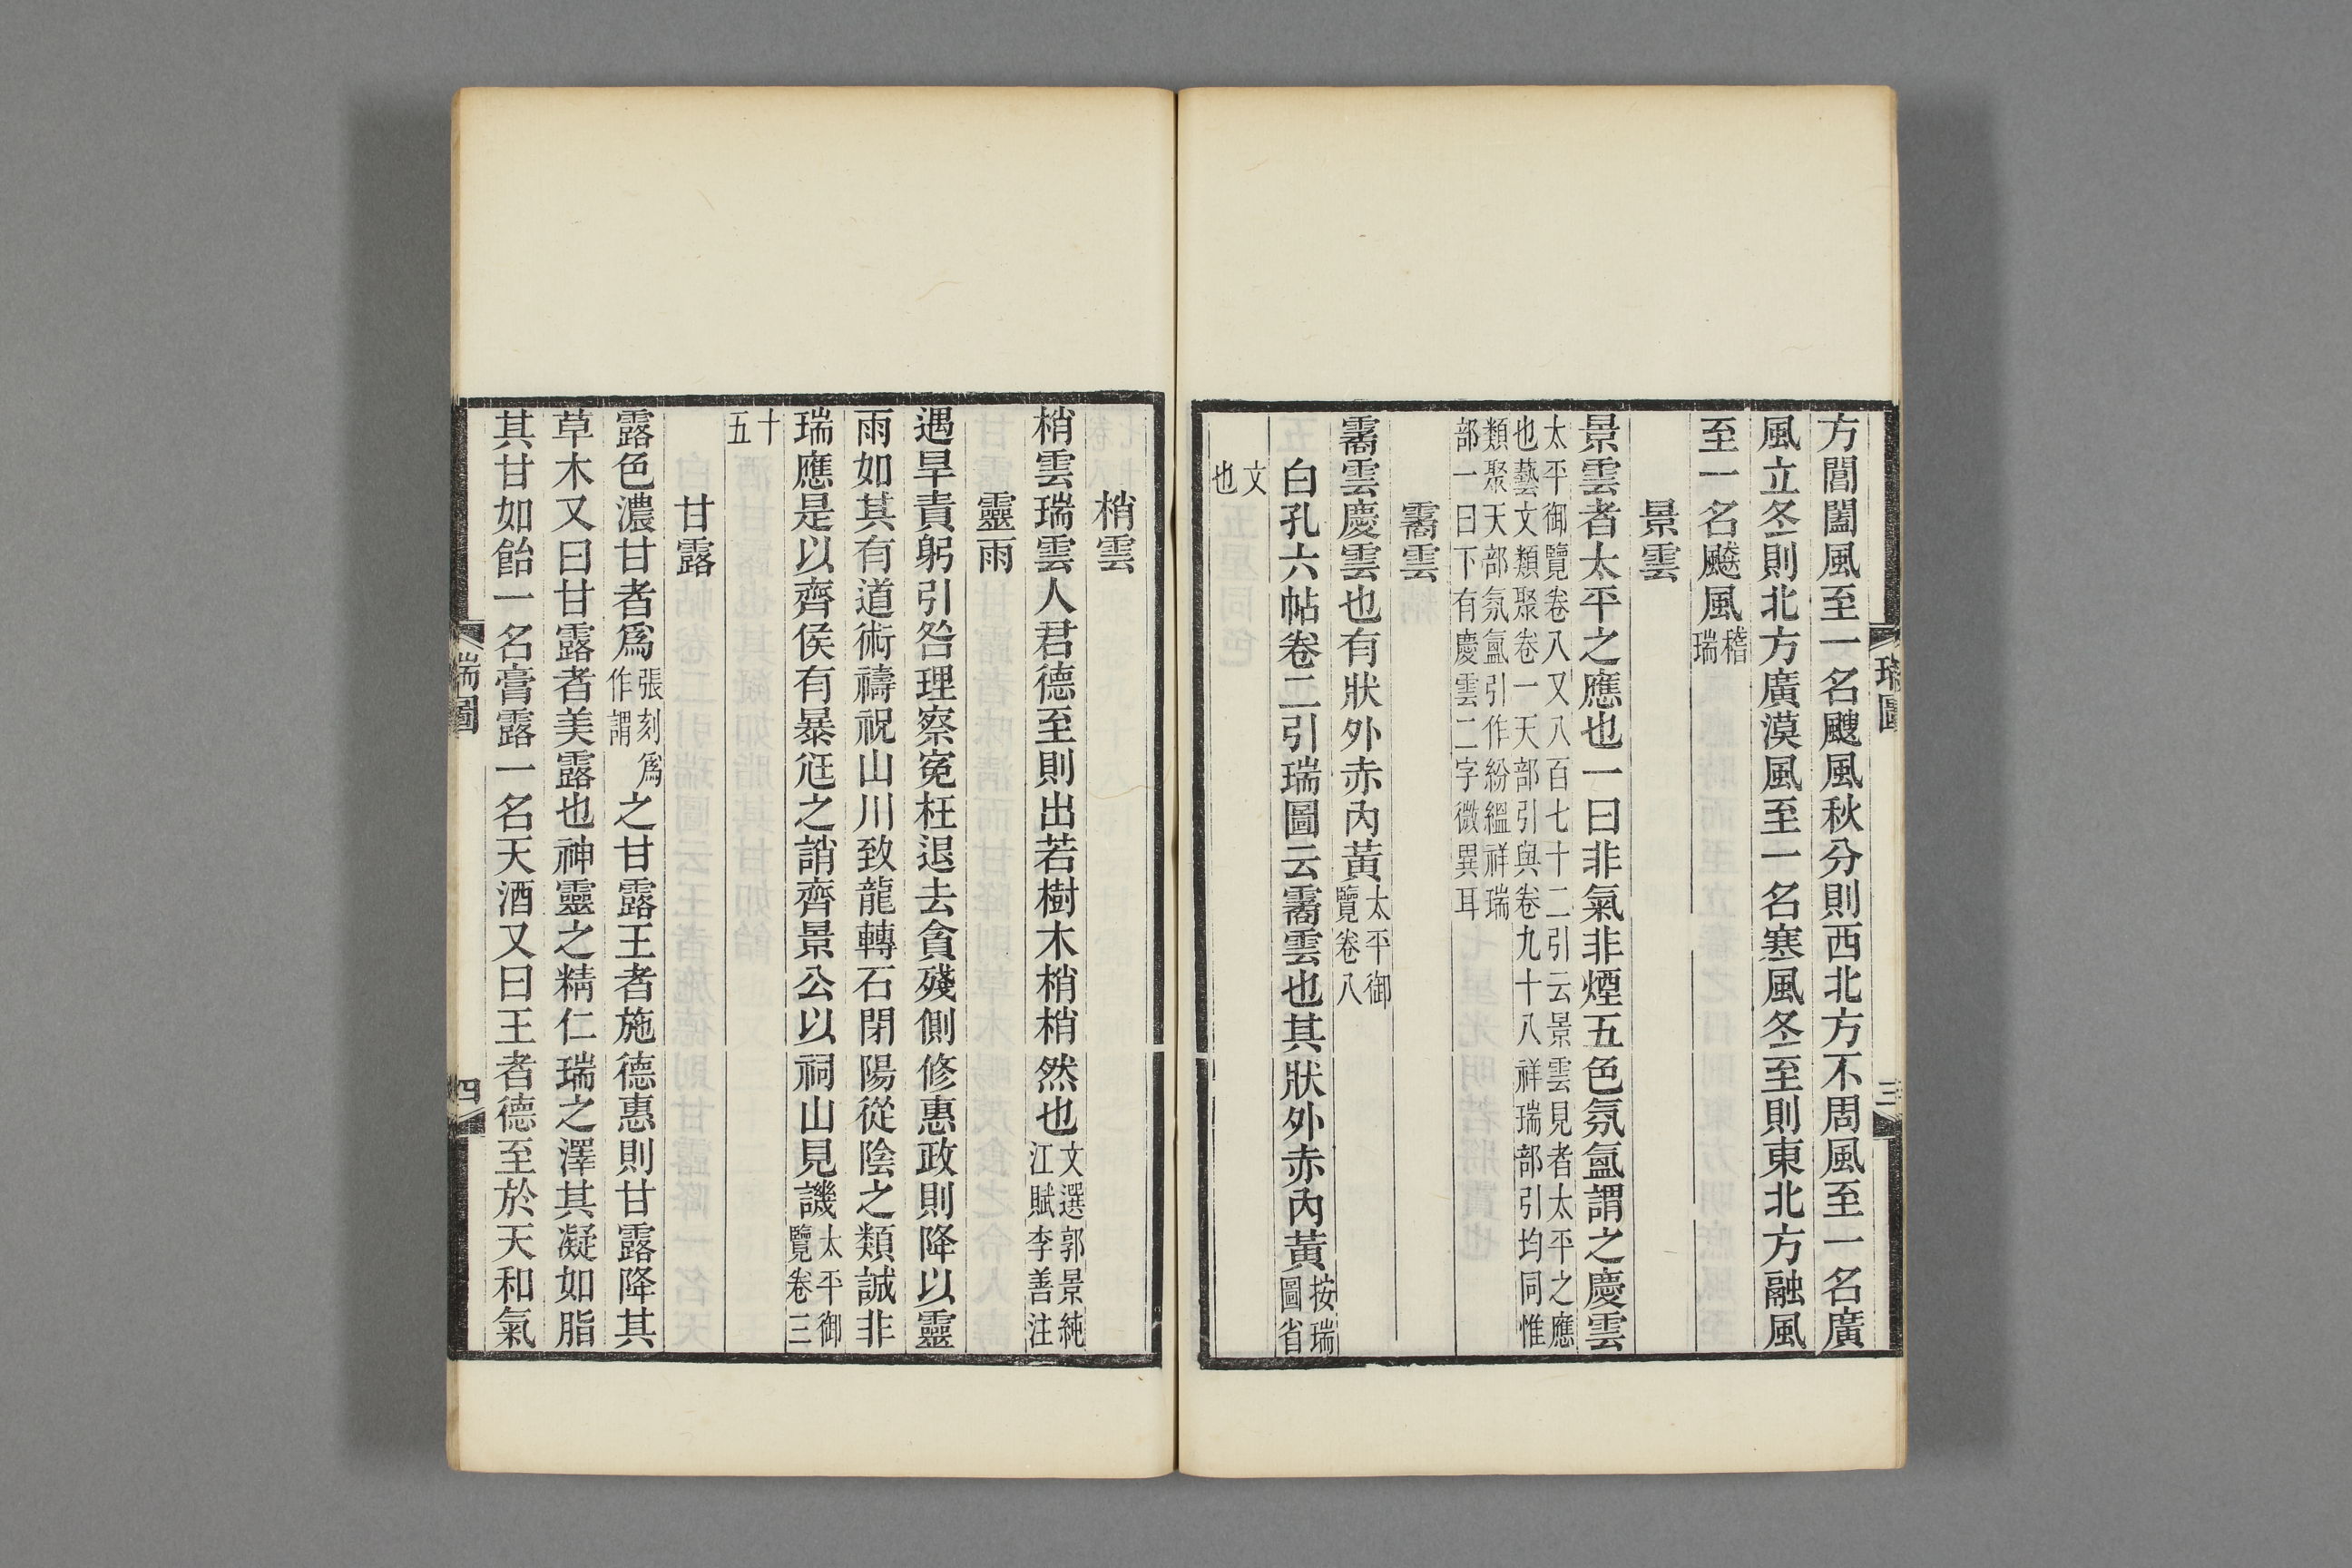 方閶闔風至一名颼風秋分則西北方不周風至一名廣
風立冬則北方廣漠風至一名寒風冬至則東北方融風
至一名飈風稽瑞
景雲
景雲者太平之應也一曰非氣非煙五色氛氳謂之慶雲
太平御覽卷八又八百七十二引云景雲見者太平之應
也藝文類聚卷一天部引與卷九十八祥瑞部引均同惟
類聚天部氛氳引作紛縕祥瑞
部一曰下有慶雲二字微異耳
矞雲
矞雲慶雲也有狀外赤內黃太平御覽卷八
白孔六帖卷二引瑞圖云矞雲也其狀外赤內黃按瑞圖省
文也
瑞圖
三
梢雲
梢雲瑞雲人君德至則出若樹木梢梢然也文選郭景純江賦李善注
靈雨
遇旱責躬引咎理察冤枉退去貪殘側修惠政則降以靈
雨如其有道術禱祝山川致龍轉石閉陽從陰之類誠非
瑞應是以齊侯有暴尪之誚齊景公以祠山見譏太平御覽卷三
十五
甘露
露色濃甘者爲張刻爲作謂之甘露王者施德惠則甘露降其
草木又曰甘露者美露也神靈之精仁瑞之澤其凝如脂
其甘如飴一名膏露一名天酒又曰王者德至於天和氣
瑞圖
四